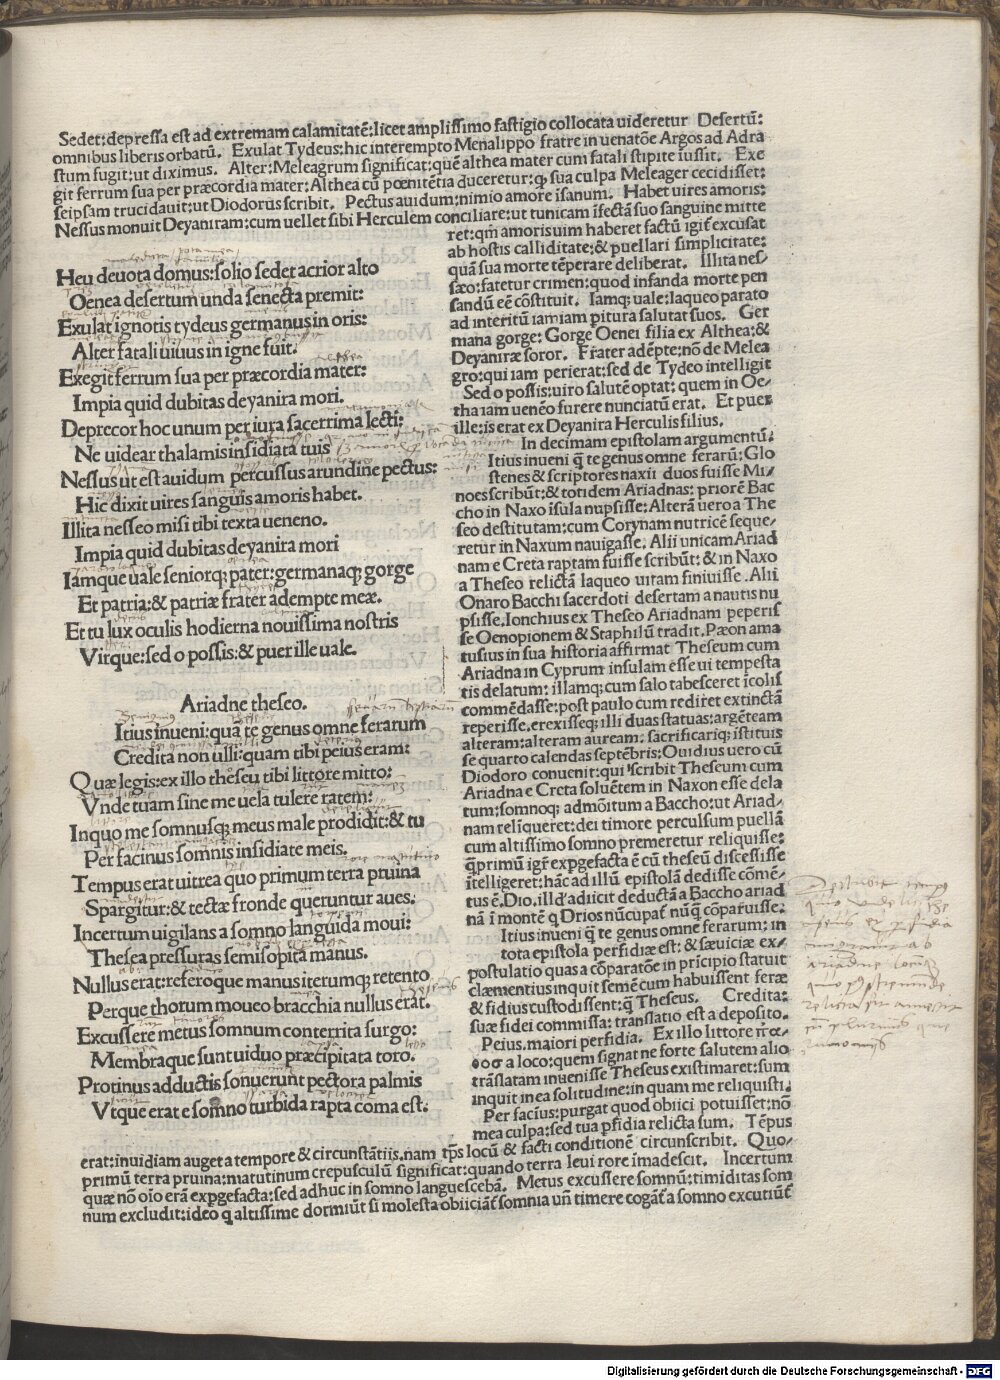 Sedet:depressa est ad extremam calamitatē:licet amplissimo fastigio collocata uideretur Desertū:
omnibus liberis orbatū. Exulat Tydeus:hic interempto Menalippo fratre in uenatōe Argos ad Adra
stum fugit:ut diximus. Alter:Meleagrum significat:quē althea mater cum fatali stipite iussit. Exe
git ferrum sua per præcordia mater:Althea cū pœnitētia duceretur:ꝙ sua culpa Meleager cecidisset:
seipsam trucidauit:ut Diodorus scribit. Pectus auidum:nimio amore isanum. Habet uires amoris:
Nessus monuit Deyaniram:cum uellet sibi Herculem conciliare:ut tunicam ifectā suo sanguine mitte
Heu deuota domus:solio sedet acrior alto
Oenea desertum unda senecta premit:
Exulat ignotis tydeus germanus in oris:
Alter fatali uiuus in igne fuit.
Exegit ferrum sua per præcordia mater:
Impia quid dubitas deyanira mori.
Deprecor hoc unum per iura sacerrima lecti:
Ne uidear thalamis insidiata tuis
Nessus ut est auidum percussus arundine pectus:
Hic dixit uires sanguis amoris habet.
Illita nesseo misi tibi texta ueneno.
Impia quid dubitas deyanira mori
Iamque uale seniorq; pater:germanaq; gorge
Et patria:& patriæ frater adempte meæ.
Et tu lux oculis hodierna nouissima nostris
Virque:sed o possis:& puer ille uale.
Ariadne theseo.
Itius inueni:quā te genus omne ferarum
Credita non ulli:quam tibi peius eram:
Quæ legis:ex illo theseu tibi littore mitto:
Vnde tuam sine me uela tulere ratem:
In quo me somnusq; meus male prodidit:& tu
Per facinus somnis insidiate meis.
Tempus erat uitrea quo primum terra pruina
Spargitur:& tectæ fronde queruntur aues.
Incertum uigilans a somno languida moui:
Thesea pressuras semisopita manus.
Nullus erat:referoque manus iterumq; retento
Perque thorum moueo bracchia nullus erat.
Excussere metus somnum conterrita surgo:
Membraque sunt uiduo præcipitata toro.
Protinus adductis sonuerunt pectora palmis
Vtque erat e somno turbida rapta coma est.
ret:qm̄ amoris uim haberet factū igit̄ excusat
ab hostis calliditate:& puellari simplicitate:
quā sua morte tēperare deliberat. Illita nes-
sæo:fatetur crimen:quod infanda morte pen
sandū eē cōstituit. Iamq; uale:laqueo parato
ad interitū iamiam pitura salutat suos. Ger
mana gorge: Gorge Oenei filia ex Althea:&
Deyaniræ soror. Frater adēpte:nō de Melea
gro:qui iam perierat:sed de Tydeo intelligit
Sed o possis:uiro salutē optat: quem in Oe-
tha iam uenēo furere nunciatū erat. Et puer
ille:is erat ex Deyanira Herculis filius.
In decimam epistolam argumentū.
Itius inueni q̄ te genus omne ferarū:Glo
stenes & scriptores naxii duos fuisse Mi-
noes scribūt:& totidem Ariadnas: priorē Bac
cho in Naxo isula nupsisse:Alterā uero a The
seo destitutam:cum Corynam nutricē seque-
retur in Naxum nauigasse. Alii unicam Ariad
nam e Creta raptam fuisse scribūt: & in Naxo
a Theseo relictā laqueo uitam finiuisse. Alii
Onaro Bacchi sacerdoti desertam a nautis nu
psisse. Ionchius ex Theseo Ariadnam peperis
se Oenopionem & Staphilū tradit. Pæon ama
tusius in sua historia affirmat Theseum cum
Ariadna in Cyprum insulam esse ui tempesta
tis delatum: illamq; cum salo tabesceret icolis
commēdasse:post paulo cum rediret extinctā
reperisse. erexisseq; illi duas statuas: argēteam
alteram:alteram auream: sacrificariq; istituis
se quarto calendas septēbris: Ouidius uero cū
Diodoro conuenit:qui scribit Theseum cum
Ariadna e Creta soluētem in Naxon esse dela
tum:somnoq; admōitum a Baccho:ut Ariad-
nam reliqueret:dei timore perculsum puellā
cum altissimo somno premeretur reliquisse:
q̄primū igr̄ expgefacta ē cū theseū discessisse
itelligeret: hāc ad illū epistolā dedisse cōmē-
tus ē. Dio. illd' adiicit deductā a Baccho ariad
nā i montē q Drios nūcupat̄ nūq̄ cōparuisse.
Itius inueni q̄ te genus omne ferarum: in
tota epistola perfidiæ est: & sæuiciæ ex-
postulatio quas a cōparatōe in pricipio statuit
clæmentius inquit semē cum habuissent feræ
& fidius custodissent:q̄ Theseus. Credita:
suæ fidei commissa: translatio est a deposito.
Peius. maiori perfidia. Ex illo littore
a loco:quem signat ne forte salutem alio
trāslatam inuenisse Theseus existimaret:sum
inquit in ea solitudine:in quam me reliquisti.
Per facius:purgat quod obiici potuisset:nō
mea culpa:sed tua pfidia relicta sum. Tēpus
erat:inuidiam auget a tempore & circunstātiis. nam tp̄s locū & facti conditionē circunscribit. Quo-
primū terra pruina:matutinum crepusculū significat:quando terra leui rore imadescit. Incertum
quæ nō oio erā expgefacta:sed adhuc in somno languescebā. Metus excussere somnū:timiditas som
num excludit:ideo q altissime dormiūt si molesta obiiciāt̄ somnia un̄ timere cogāt̄ a somno excutiūt̄
Digitalisierung gefördert durch die Deutsche Forschungsgemeinschaft - DFG